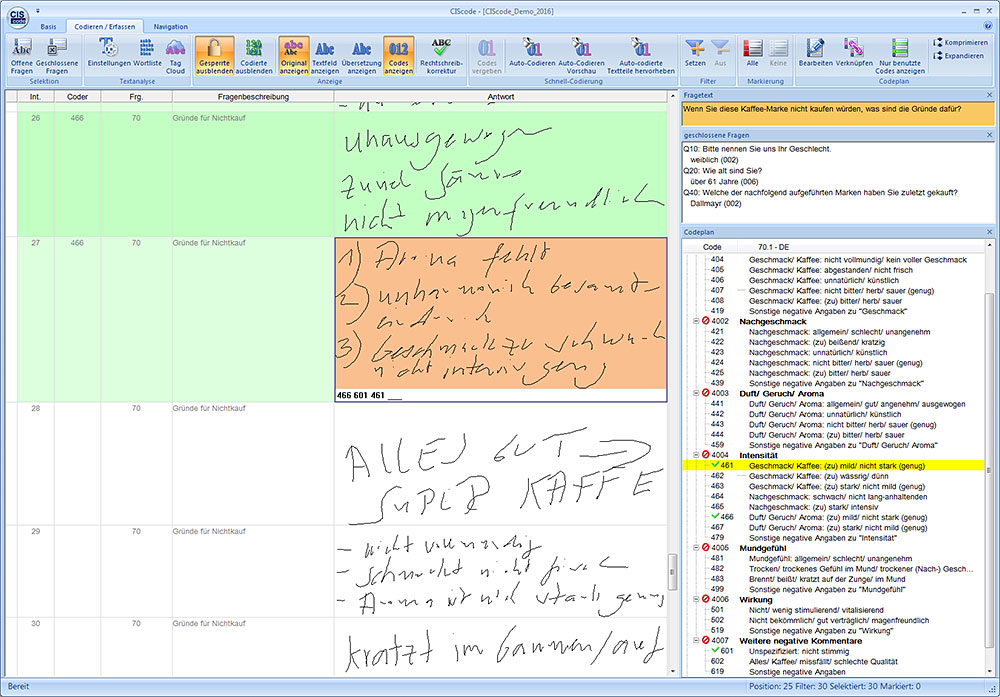 CIScode - [CIScode_Demo_2016]
CIS
code
Basis
Codieren / Erfassen
Navigation
Offene Fragen
Geschlossene Fragen
Selektion
Einstellungen
Wortliste
Tag Cloud
Textanalyse
Gesperte ausblenden
Codierte ausblenden
Original anzeigen
Textfeld anzeigen
Übersetzung anzeigen
Codes anzeigen
Anzeige
Rechtschreib-korrektur
Codes vergeben
Auto-Codieren
Auto-Codieren Vorschau
Auto-codierte Textteile hervorheben
Schnell-Codierung
Setzen
Aus
Filter
Alle
Keine
Markierung
Bearbeiten
Verknüpfen
Nur benutzte Codes anzeigen
Komprimieren
Expandieren
Codeplan
Int. Coder Frg. Fragenbeschreibung Antwort
26 466 70 Gründe für Nichtkauf
unausgewogen
zuviel Säure
nicht magenfreundlich
27 466 70 Gründe für Nichtkauf
1) Aroma fehlt
2) unharmonisch Gesamt-
eindruck
3) Geschmack zu schwach
nicht intensiv genug
466 601 461 ___
28 70 Gründe für Nichtkauf
ALLES GUT
SUPER KAFFE
29 70 Gründe für Nichtkauf
- nicht vollmundig
- schmeckt nicht frisch
- Aroma ist nicht stark genug
30 70 Gründe für Nichtkauf
kratzt im Gaumen/auf
Fragetext
Wenn Sie diese Kaffee-Marke nicht kaufen würden, was sind die Gründe dafür?
geschlossene Fragen
Q10: Bitte nennen Sie uns Ihr Geschlecht.
weiblich (002)
Q20: Wie alt sind Sie?
über 61 Jahre (006)
Q40: Welche der nachfolgend aufgeführten Marken haben Sie zuletzt gekauft?
Dallmayr (002)
Codeplan
Code 70.1 - DE
404 Geschmack/ Kaffee: nicht vollmundig/ kein voller Geschmack
405 Geschmack/ Kaffee: abgestanden/ nicht frisch
406 Geschmack/ Kaffee: unnatürlich/ künstlich
407 Geschmack/ Kaffee: nicht bitter/ herb/ sauer (genug)
408 Geschmack/ Kaffee: (zu) bitter/ herb/ sauer
419 Sonstige negative Angaben zu "Geschmack"
4002 Nachgeschmack
421 Nachgeschmack: allgemein/ schlecht/ unangenehm
422 Nachgeschmack: (zu) beißend/ kratzig
423 Nachgeschmack: unnatürlich/ künstlich
424 Nachgeschmack: nicht bitter/ herb/ sauer (genug)
425 Nachgeschmack: (zu) bitter/ herb/ sauer
439 Sonstige negative Angaben zu "Nachgeschmack"
4003 Duft/ Geruch/ Aroma
441 Duft/ Geruch/ Aroma: allgemein/ gut/ angenehm/ ausgewogen
442 Duft/ Geruch/ Aroma: unnatürlich/ künstlich
443 Duft/ Geruch/ Aroma: nicht bitter/ herb/ sauer (genug)
444 Duft/ Geruch/ Aroma: (zu) bitter/ herb/ sauer
459 Sonstige negative Angaben zu "Duft/ Geruch/ Aroma"
4004 Intensität
461 Geschmack/ Kaffee: (zu) mild/ nicht stark (genug)
462 Geschmack/ Kaffee: (zu) wässrig/ dünn
463 Geschmack/ Kaffee: (zu) stark/ nicht mild (genug)
464 Nachgeschmack: schwach/ nicht lang-anhaltenden
465 Nachgeschmack: (zu) stark/ intensiv
466 Duft/ Geruch/ Aroma: (zu) mild/ nicht stark (genug)
467 Duft/ Geruch/ Aroma: (zu) stark/ nicht mild (genug)
479 Sonstige negative Angaben zu "Intensität"
4005 Mundgefühl
481 Mundgefühl: allgemein/ schlecht/ unangenehm
482 Trocken/ trockenes Gefühl im Mund/ trockener (Nach-) Gesch...
483 Brennt/ beißt/ kratzt auf der Zunge/ im Mund
499 Sonstige negative Angaben zu "Mundgefühl"
4006 Wirkung
501 Nicht/ wenig stimulierend/ vitalisierend
502 Nicht bekömmlich/ gut verträglich/ magenfreundlich
519 Sonstige negative Angaben zu "Wirkung"
4007 Weitere negative Kommentare
601 Unspezifiziert: nicht stimmig
602 Alles/ Kaffee/ missfällt/ schlechte Qualität
619 Sonstige negative Angaben
Bereit
Position: 25 Filter: 30 Selektiert: 30 Markiert: 0